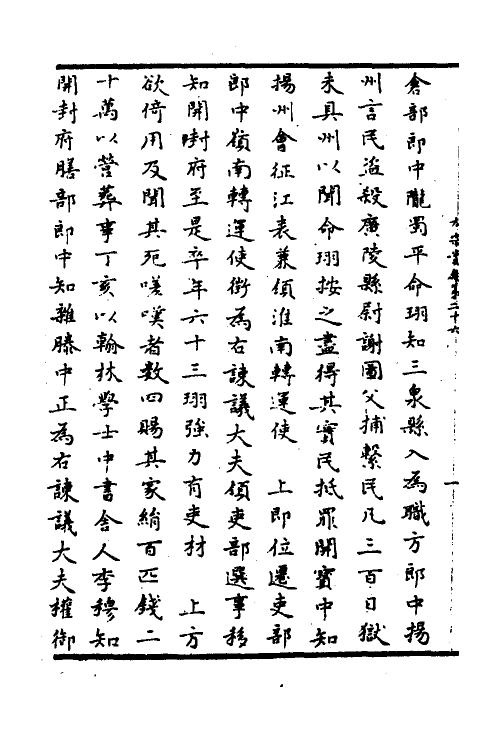 倉部郎中隴蜀平命珝知三泉縣入為職方郎中揚
州言民盜殺廣陵縣尉謝圖父捕繫民凡三百日獄
未具州以聞命珝按之盡得其實民抵罪開寶中知
揚州會征江表兼領淮南轉運使　上即位遷吏部
郎中嶺南轉運使衛為右諫議大夫領吏部選事移
知開封府至是卒年六十三珝強力有吏材　上方
欲倚用及聞其死嗟嘆者數四賜其家絹百匹錢二
十萬以營葬事丁亥以翰林學士中書舍人李穆知
開封府膳部郎中知雜滕中正為右諫議大夫權御